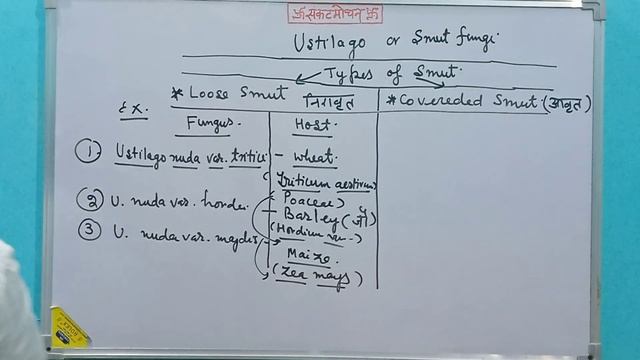 卐संकटमोचन卐
Ustilago or Smut fungi
Types of Smut.
* Loose Smut निरावृत
* Covereded Smut (आवृत)
Ex. Fungus. Host.
① Ustilago nuda var. tritici - wheat.
(Triticum aestivum
Poaceae)
② U. nuda var. hordei - Barley (जौ)
(Hordium
③ U. nuda var. maydis - Maize.
(Zea mays)